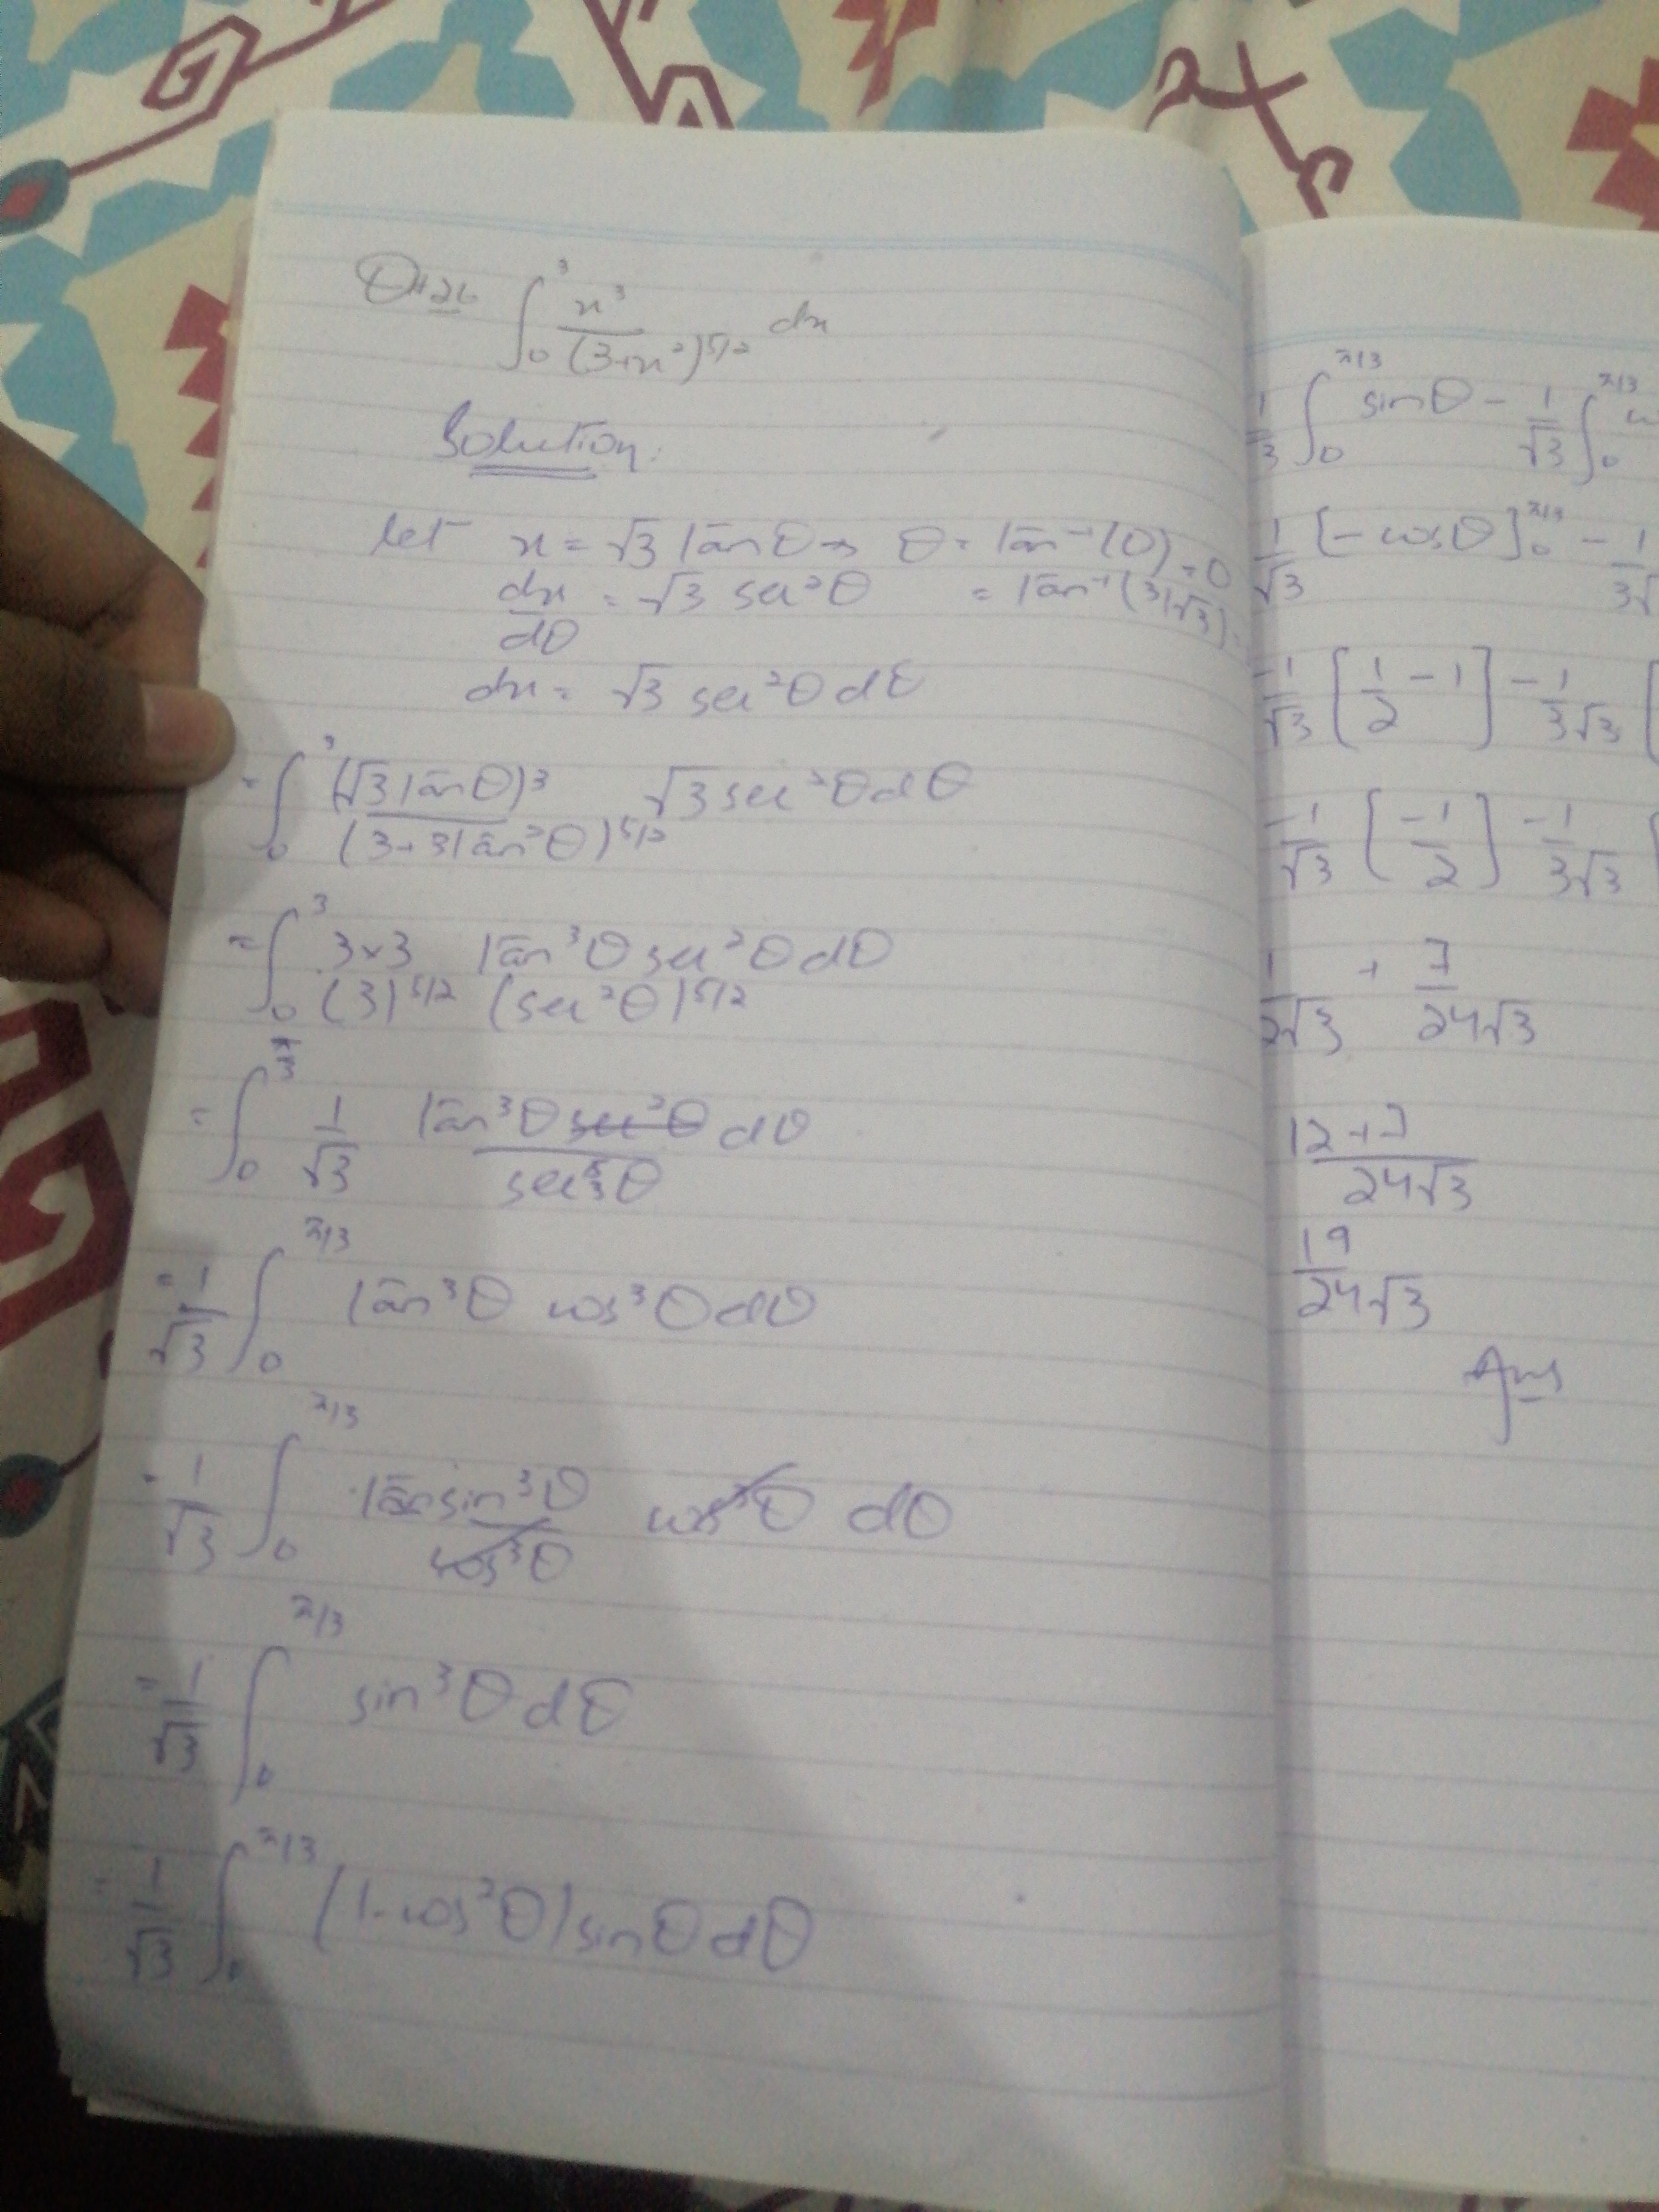 Q#26 ∫₀³ x³/(3+x²)^5/2 dx
Solution:
let x = √3 tanθ → θ = tan⁻¹(0) = 0
dx/dθ = √3 sec²θ = tan⁻¹(3/√3)
dx = √3 sec²θ dθ
= ∫₀³ (√3 tanθ)³/(3+3tan²θ)^5/2 √3 sec²θ dθ
= ∫₀³ 3×3 tan³θ sec²θ dθ / (3)^5/2 (sec²θ)^5/2
= ∫₀ 1/√3 tan³θ sec²θ dθ / sec³θ
= 1/√3 ∫₀^π/3 tan³θ cos³θ dθ
= 1/√3 ∫₀^π/3 sin³θ/cos³θ cos³θ dθ
= 1/√3 ∫₀^π/3 sin³θ dθ
= 1/√3 ∫₀^π/3 (1-cos²θ) sinθ dθ
1/3 ∫₀^π/3 sinθ - 1/√3 ∫₀^π/3
1/√3 [-cosθ]₀^π/3 - 1/3√
-1/√3 [1/2 - 1] - 1/3√3 [
-1/√3 [-1/2] - 1/3√3 [
1/2√3 + 7/24√3
12+7/24√3
19/24√3
Ans